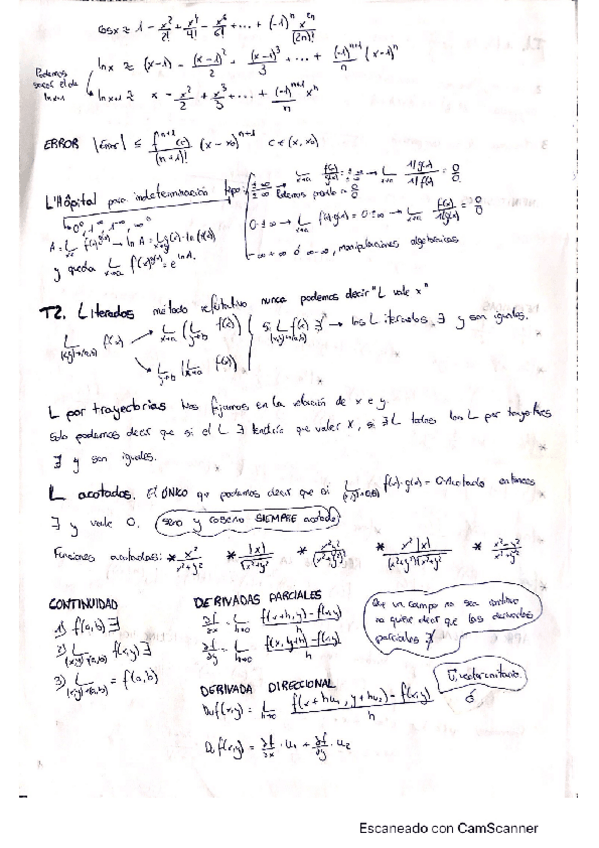 cosx ≈ 1 - x²/2! + x⁴/4! - x⁶/6! + ... + (-1)ⁿ x²ⁿ/(2n)!
Podemos
lnx ≈ (x-1) - (x-1)²/2 + (x-1)³/3 + ... + (-1)ⁿ⁺¹/n (x-1)ⁿ
x - x²/2 + x³/3 + ... + (-1)ⁿ⁺¹/n xⁿ
ERROR |Error| ≤ fⁿ⁺¹(c)/(n+1)! (x-x₀)ⁿ⁺¹ c∈(x,x₀)
L'Hôpital para indeterminación tipo:
0·±∞ → L f(x)·g(x) = 0·±∞ → L f(x)/1/g(x) = 0/0
-∞+∞ ó ∞-∞, manipulaciones algebraicas
y queda L x→a f(x)^g(x) = e^lnA.
T2. L iterados método refutativo nunca podemos decir "L vale x"
L (x,y)→(a,b) f(x) L x→a (L y→b f(x)) si L f(x) ∃ → los L iterados ∃ y son iguales.
(x,y)→(a,b)
L y→b (L x→a f(x))
L por trayectorias Nos fijamos en la relación de x e y
Solo podemos decir que si el L ∃ tendría que valer x, si ∃ L todos los L por trayectorias
∃ y son iguales.
L acotados. El ÚNICO que podemos decir que si L (x,y)→(a,b) f(x)·g(x) = 0·Acotado entonces
∃ y vale 0. seno y coseno SIEMPRE acotado
Funciones acotadas: * x²/x²+y² * |x|/√x²+y² * * x²|x|/(x²+y²)√x²+y² * x²-y²/x²+y²
CONTINUIDAD
1) f(a,b) ∃
2) L (x,y)→(a,b) f(x,y) ∃
3) L (x,y)→(a,b) = f(a,b)
DERIVADAS PARCIALES
∂f/∂x = L h→0 f(x+h,y)-f(x,y)/h
∂f/∂y = L h→0 f(x,y+h)-f(x,y)/h
Que un campo no sea continuo
no quiere decir que las derivadas
parciales ∄
DERIVADA DIRECCIONAL
Duf(x,y) = L h→0 f(x+hu₁, y+hu₂)-f(x,y)/h
U, vector unitario.
ó
Duf(x,y) = ∂f/∂x · u₁ + ∂f/∂y · u₂
Escaneado con CamScanner